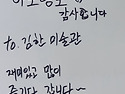 감사합니다
to. 김한 미술관
재미있고 많이
즐기다 갑니다~